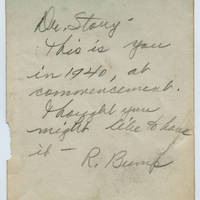 Dr. Story -
This is you
in 1940, at
commencement.
I thought you
might like to have
it -
R. Bump